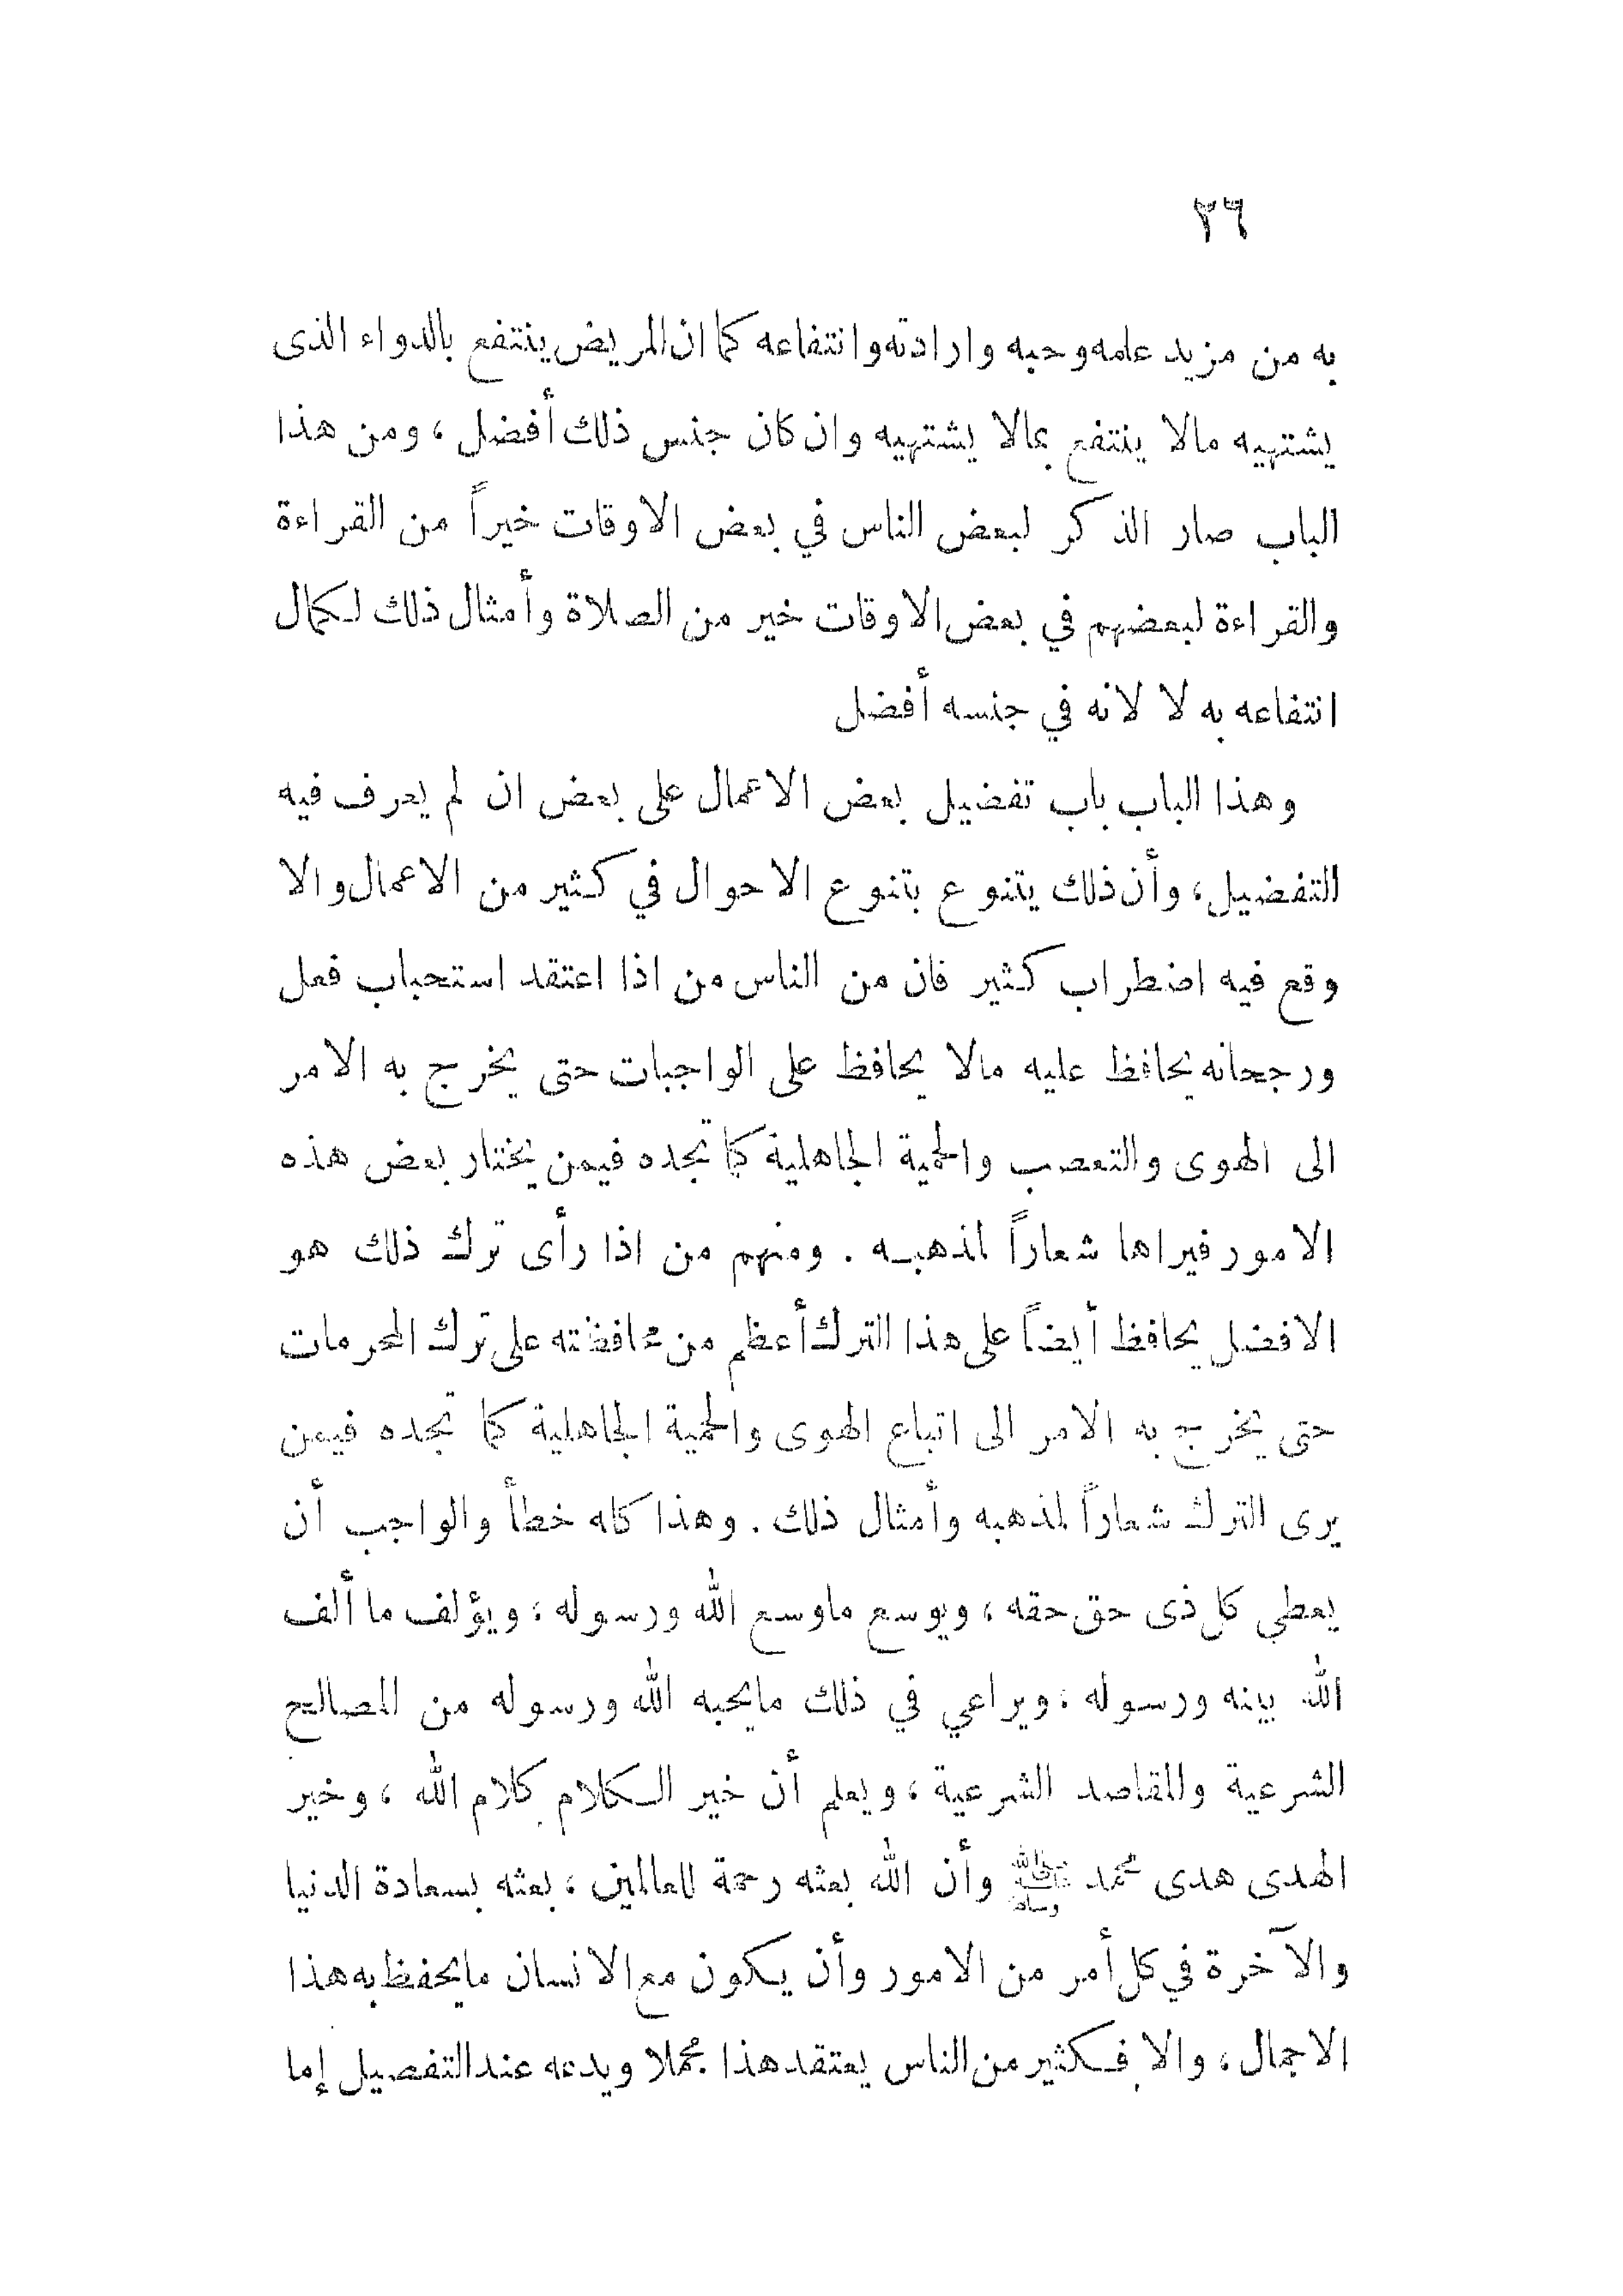 ٢٦
به من مزيد علمه وحبه وارادته وانتفاعه كما ان المريض ينتفع بالدواء الذى
يشتهيه مالا ينتفع بمالا يشتهيه وان كان جنس ذلك أفضل ، ومن هذا
الباب صار الذكر لبعض الناس في بعض الاوقات خيراً من القراءة
والقراءة لبعضهم في بعض الاوقات خير من الصلاة وأمثال ذلك لكمال
انتفاعه به لا لانه في جنسه أفضل
وهذا الباب باب تفضيل بعض الاعمال على بعض ان لم يعرف فيه
التفضيل ، وأن ذلك يتنوع بتنوع الاحوال في كثير من الاعمال والا
وقع فيه اضطراب كثير فان من الناس من اذا اعتقد استحباب فعل
ورجحانه يحافظ عليه مالا يحافظ على الواجبات حتى يخرج به الامر
الى الهوى والتعصب والحمية الجاهلية كما تجده فيمن يختار بعض هذه
الامور فيراها شعاراً لمذهبه . ومنهم من اذا رأى ترك ذلك هو
الافضل يحافظ أيضاً على هذا الترك أعظم من محافظته على ترك المحرمات
حتى يخرج به الامر الى اتباع الهوى والحمية الجاهلية كما تجده فيمن
يرى الترك شعاراً لمذهبه وأمثال ذلك . وهذا كله خطأ والواجب أن
يعطي كل ذى حق حقه ، ويوسع ماوسع الله ورسوله ، ويؤلف ما ألف
الله بينه ورسوله ، ويراعي في ذلك مايحبه الله ورسوله من المصالح
الشرعية والمقاصد الشرعية ، ويعلم أن خير الكلام كلام الله ، وخير
الهدى هدى محمد ﷺ وأن الله بعثه رحمة للعالمين ، بعثه بسعادة الدنيا
والآخرة في كل أمر من الامور وأن يكون مع الانسان مايحفظ به هذا
الاجمال ، والا فكثير من الناس يعتقد هذا مجملا ويدعه عند التفصيل إما